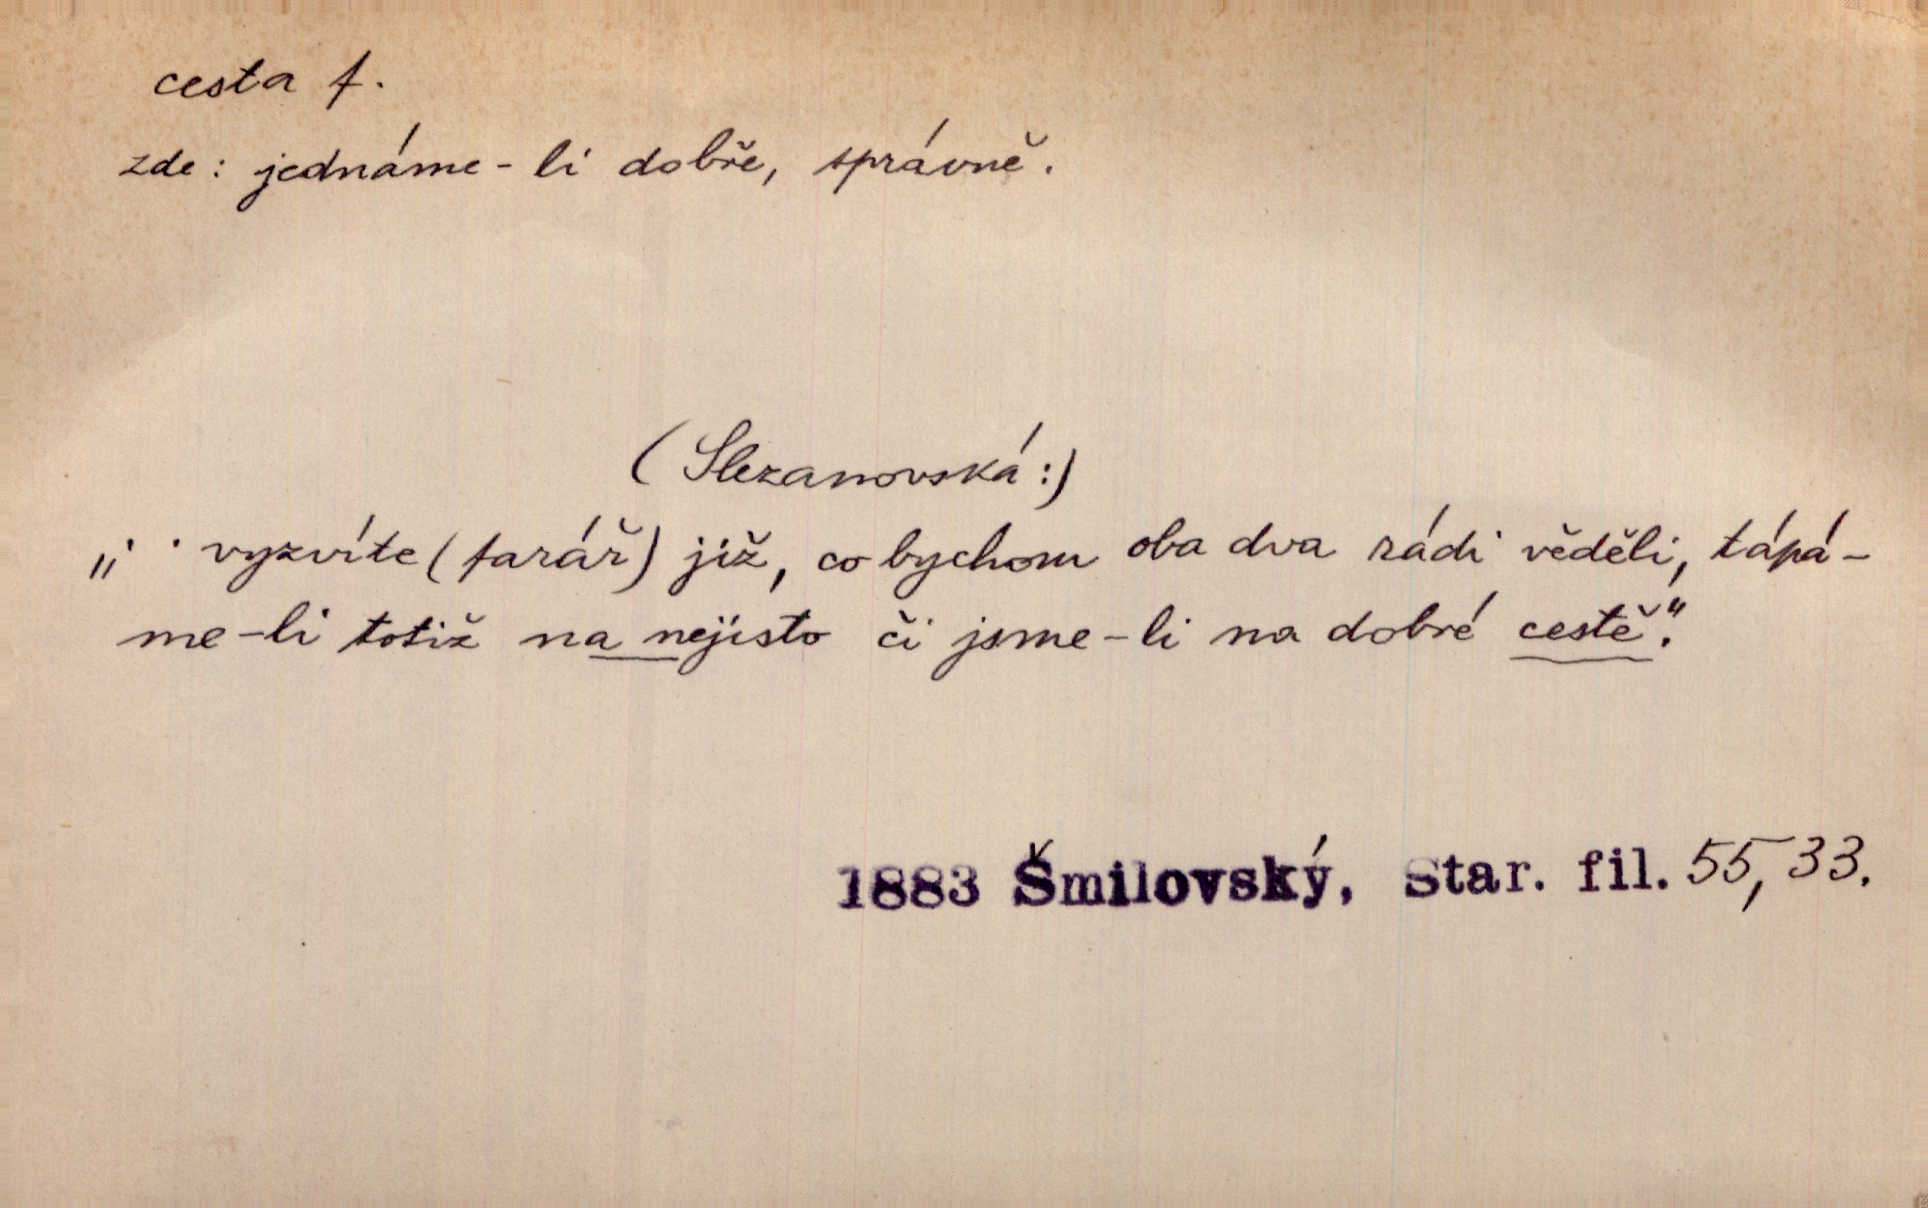 cesta f.
zde: jednáme-li dobře, správně.
(Slezanovská:)
„· · vyzvíte (farář) již, co bychom oba dva rádi věděli, tápá-
me-li totiž na nejisto či jsme-li na dobré cestě."
1883 Šmilovský, Star. fil. 55, 33.